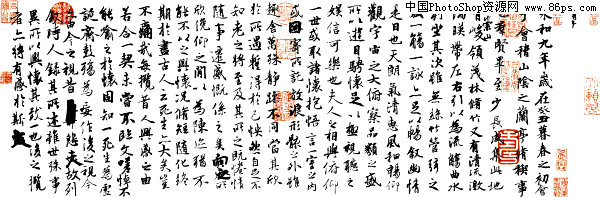 中国PhotoShop资源网
WWW.86PS.COM
永和九年歲在癸丑暮春之初會
于會稽山陰之蘭亭脩稧事
也群賢畢至少長咸集此地
有崇山峻領茂林脩竹又有清流激
湍暎帶左右引以為流觴曲水
列坐其次雖無絲竹管弦之
盛一觴一詠亦足以暢敘幽情
是日也天朗氣清惠風和暢仰
觀宇宙之大俯察品類之盛
所以遊目騁懷足以極視聽之
娛信可樂也夫人之相與俯仰
一世或取諸懷抱悟言一室之內
或因寄所託放浪形骸之外雖
趣舍萬殊靜躁不同當其欣
於所遇暫得於己怏然自足不
知老之將至及其所之既惓情
隨事遷感慨係之矣向之所
欣俛仰之閒以為陳跡猶不
能不以之興懷況脩短隨化終
期於盡古人云死生亦大矣豈
不痛哉每攬昔人興感之由
若合一契未嘗不臨文嗟悼不
能喻之於懷固知一死生為虛
誕齊彭殤為妄作後之視今
亦由今之視昔悲夫故列
敘時人錄其所述雖世殊事
異所以興懷其致一也後之攬
者亦將有感於斯文